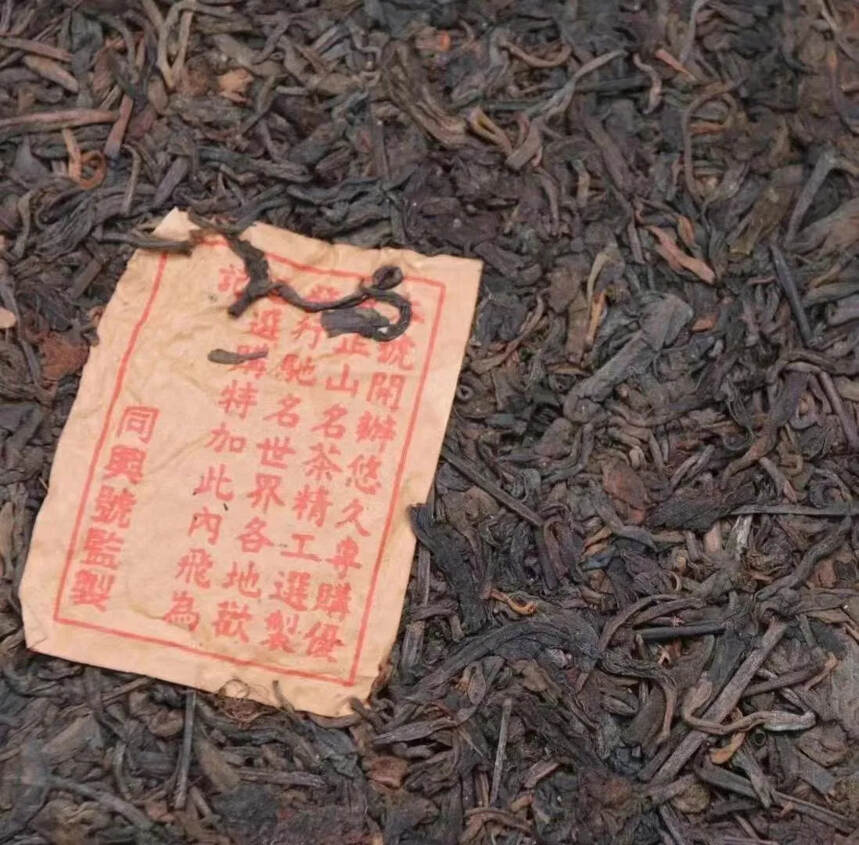 號開辦悠久專購優
正山名茶精工選製
發行馳名世界各地歡
選購特加此內飛為
記
同興號監製